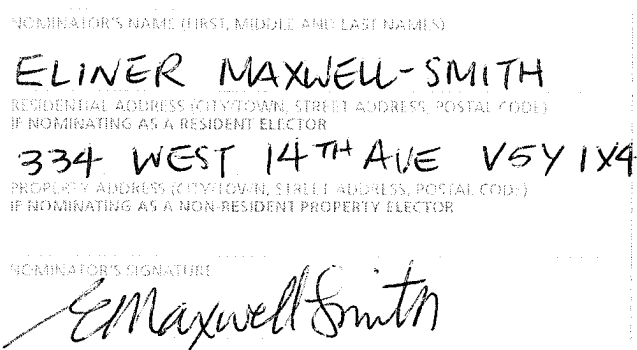 NOMINATOR'S NAME (FIRST, MIDDLE AND LAST NAMES)
ELINER MAXWELL-SMITH
RESIDENTIAL ADDRESS (CITY/TOWN, STREET ADDRESS, POSTAL CODE)
IF NOMINATING AS A RESIDENT ELECTOR
334 WEST 14TH AVE V5Y 1X4
PROPERTY ADDRESS (CITY/TOWN, STREET ADDRESS, POSTAL CODE)
IF NOMINATING AS A NON-RESIDENT PROPERTY ELECTOR
NOMINATOR'S SIGNATURE
EMaxwellSmith